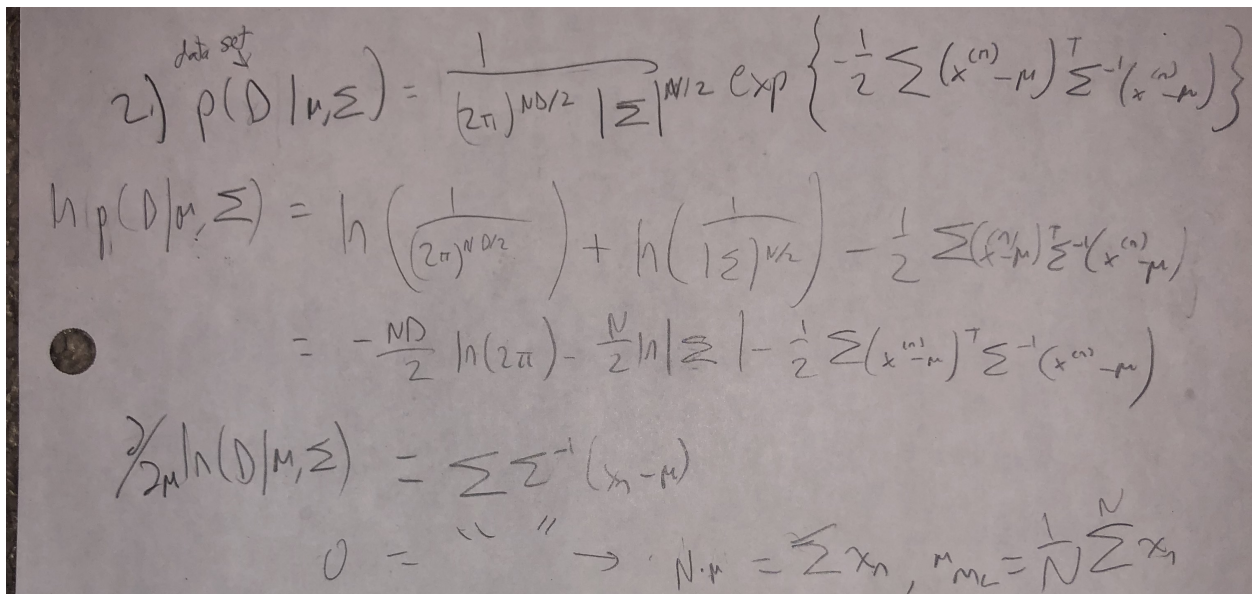 data set
2.) p(D|μ,Σ) = 1/((2π)^{ND/2} |Σ|^{N/2}) exp{-1/2 Σ (x^{(n)}-μ)^T Σ^{-1} (x^{(n)}-μ)}
ln p(D|μ,Σ) = ln(1/(2π)^{ND/2}) + ln(1/|Σ|^{N/2}) - 1/2 Σ(x^{(n)}-μ)^T Σ^{-1}(x^{(n)}-μ)
= -ND/2 ln(2π) - N/2 ln|Σ| - 1/2 Σ(x^{(n)}-μ)^T Σ^{-1}(x^{(n)}-μ)
∂/∂μ ln(D|μ,Σ) = Σ Σ^{-1} (x_n-μ)
0 = " " → N·μ = Σ x_n, μ_{ML} = 1/N Σ^N x_n